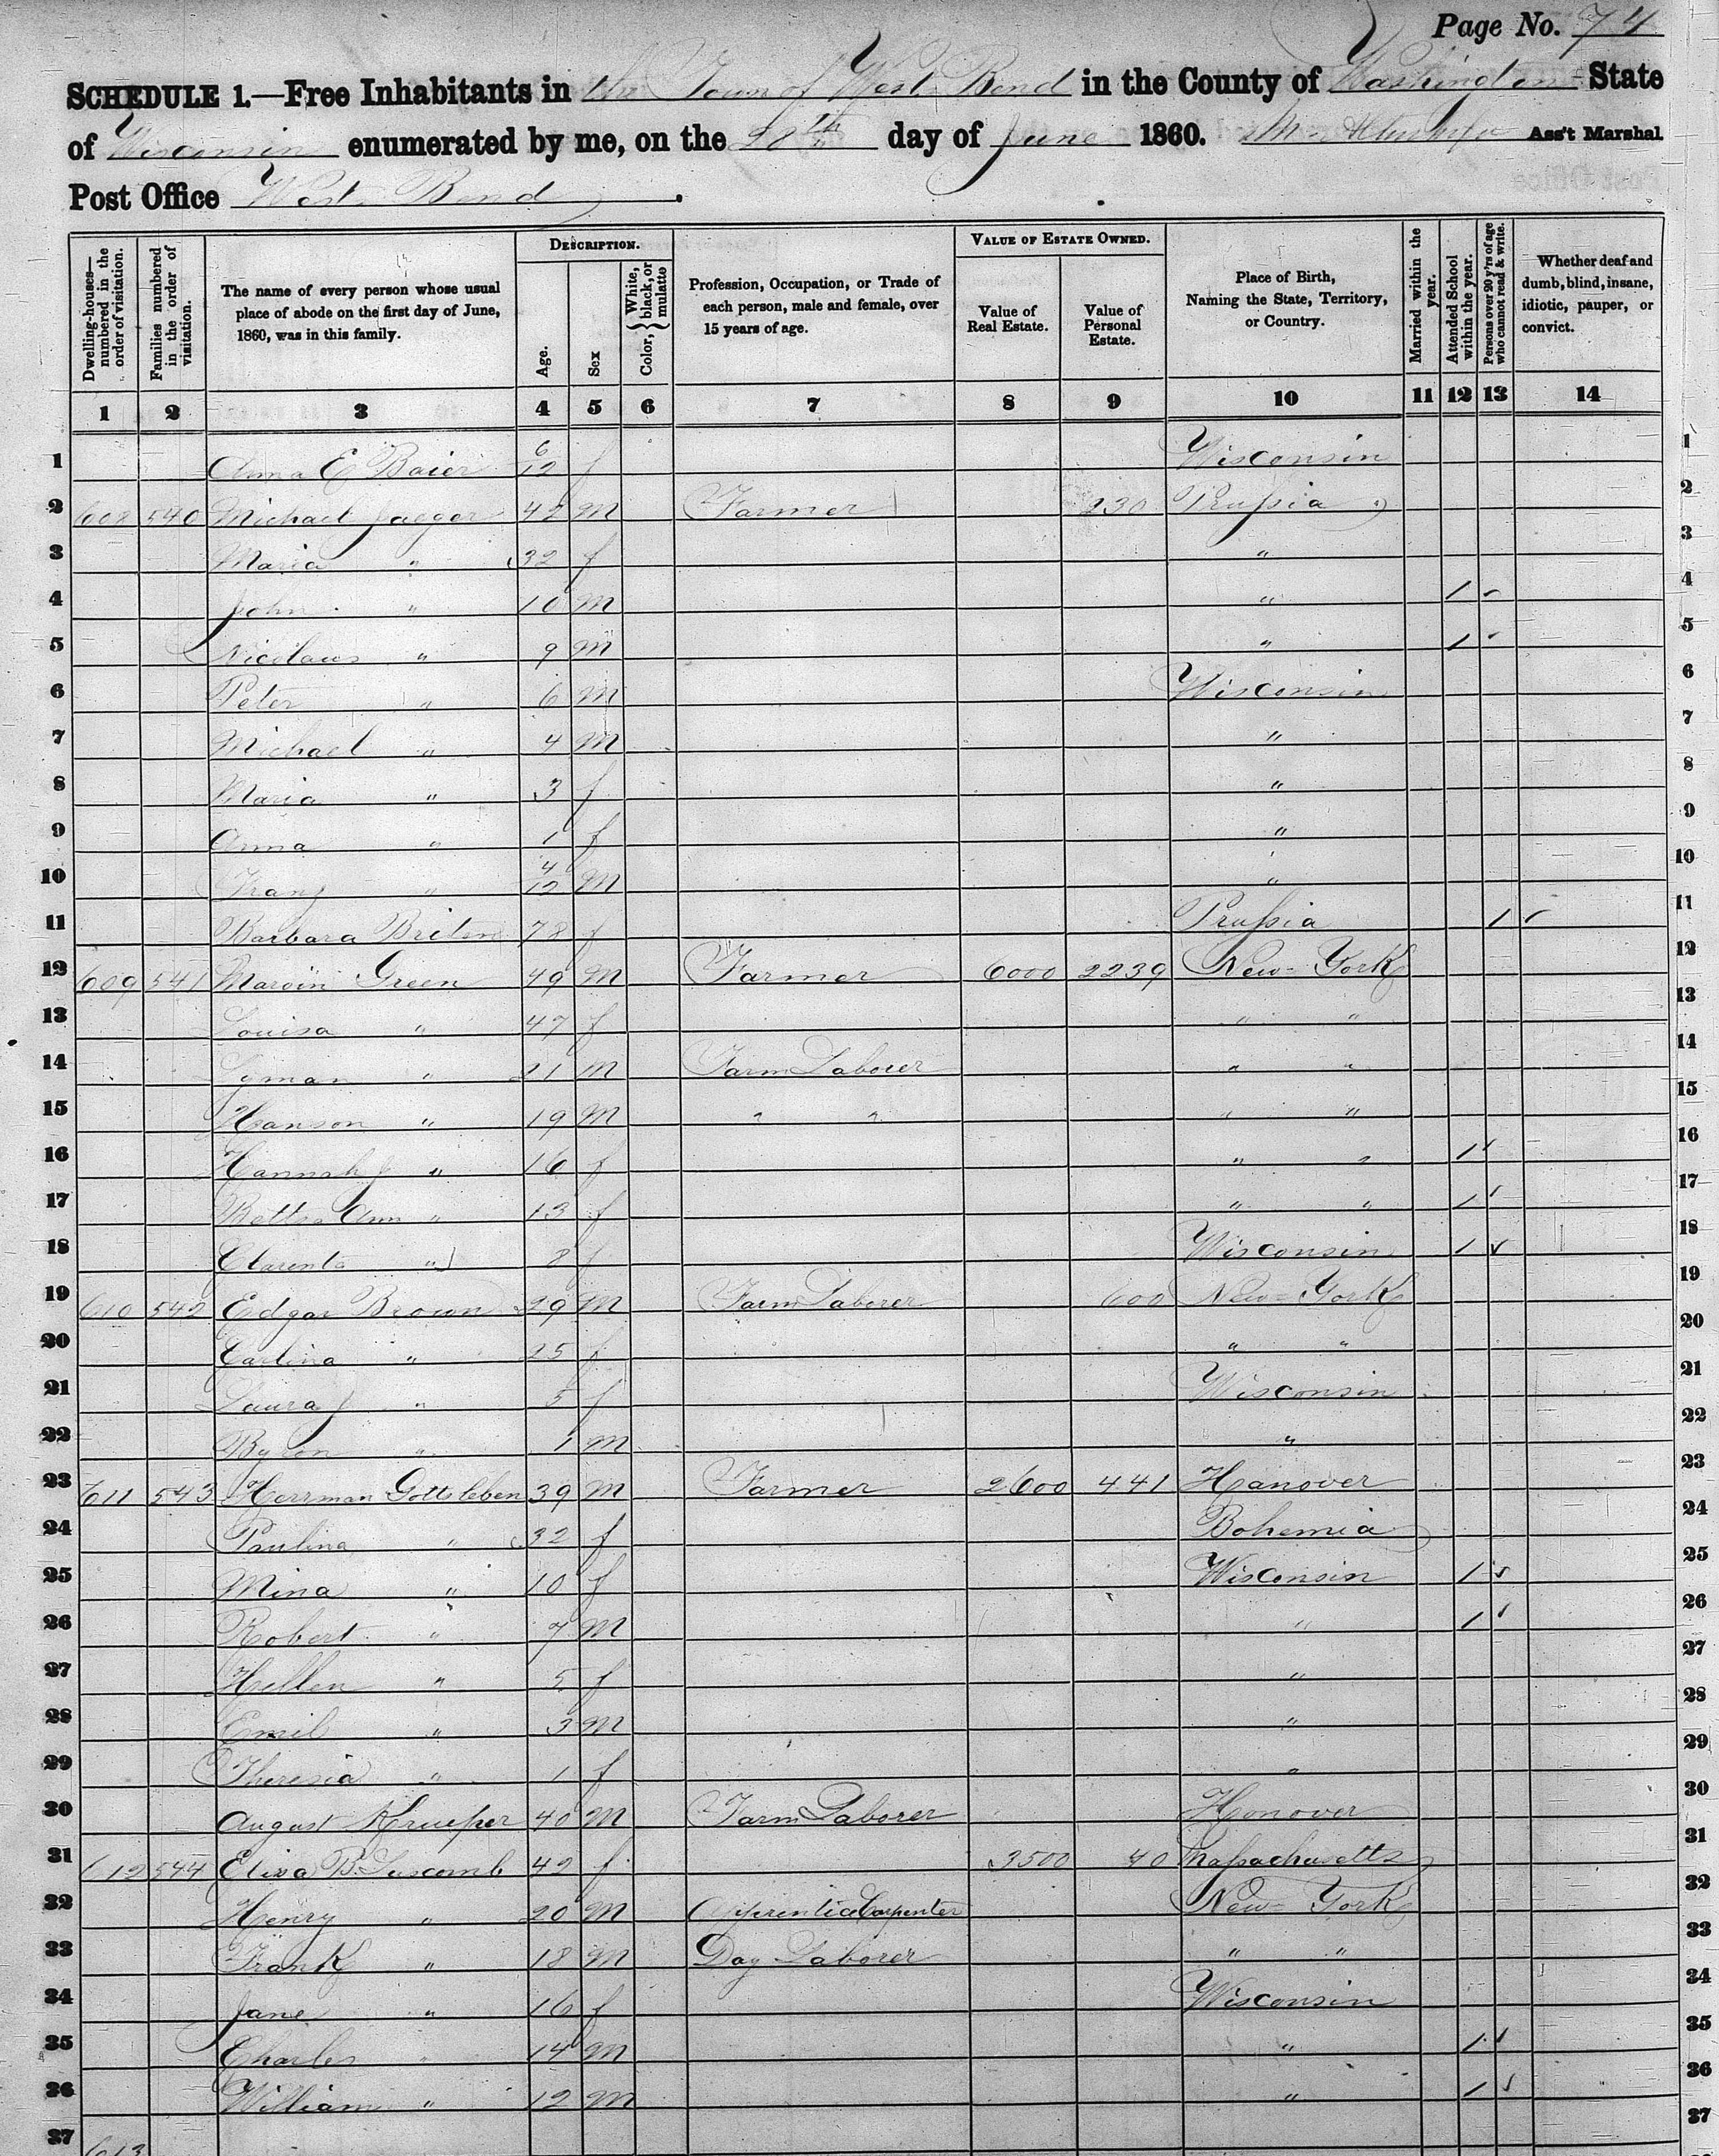 Page No. 74
SCHEDULE 1.—Free Inhabitants in the Town of West Bend in the County of Washington State
of Wisconsin enumerated by me, on the 20th day of June 1860. Ass't Marshal
Post Office West Bend.
Dwelling-houses—numbered in the order of visitation. Families numbered in the order of visitation. The name of every person whose usual place of abode on the first day of June, 1860, was in this family. DESCRIPTION. Age. Sex Color, White, black, or mulatto Profession, Occupation, or Trade of each person, male and female, over 15 years of age. VALUE OF ESTATE OWNED. Value of Real Estate. Value of Personal Estate. Place of Birth, Naming the State, Territory, or Country. Married within the year. Attended School within the year. Persons over 20 y'rs of age who cannot read & write. Whether deaf and dumb, blind, insane, idiotic, pauper, or convict.
1 2 3 4 5 6 7 8 9 10 11 12 13 14
1 Anna E Baier 6/12 f Wisconsin 1
2 608 540 Michael Jaeger 42 M Farmer 230 Prussia 2
3 Maria " 32 f " 3
4 John " 10 M " 1 4
5 Nicolaus " 9 M " 1 5
6 Peter " 6 M Wisconsin 6
7 Michael " 4 M " 7
8 Maria " 3 f " 8
9 Anna " 1 f " 9
10 Franz " 4/12 M " 10
11 Barbara Briten 78 f Prussia 1 11
12 609 541 Marvin Green 49 M Farmer 6000 2239 New-York 12
13 Louisa " 47 f " " 13
14 Lyman " 21 M Farm Laborer " " 14
15 Hanson " 19 M " " " " 15
16 Hannah J " 16 f " " 1 16
17 Betts Ann " 13 f " " 1 17
18 Clarenta " 8 f Wisconsin 1 18
19 610 542 Edgar Brown 29 M Farm Laborer 600 New-York 19
20 Carlina " 25 f " " 20
21 Laura J " 5 f Wisconsin 21
22 Byron " 1 M " 22
23 611 543 Herrman Gottsleben 39 M Farmer 2600 441 Hanover 23
24 Paulina " 32 f Bohemia 24
25 Mina " 10 f Wisconsin 1 25
26 Robert " 7 M " 1 26
27 Hellen " 5 f " 27
28 Emil " 3 M " 28
29 Theresia " 1 f " 29
30 August Krueper 40 M Farm Laborer Honover 30
31 612 544 Eliza B. Luscomb 42 f 3500 40 Massachusetts 31
32 Henry " 20 M Apprentice Carpenter New-York 32
33 Frank " 18 M Day Laborer " " 33
34 Jane " 16 f Wisconsin 34
35 Charles " 14 M " 1 35
36 William " 12 M " 1 36
37 613 37